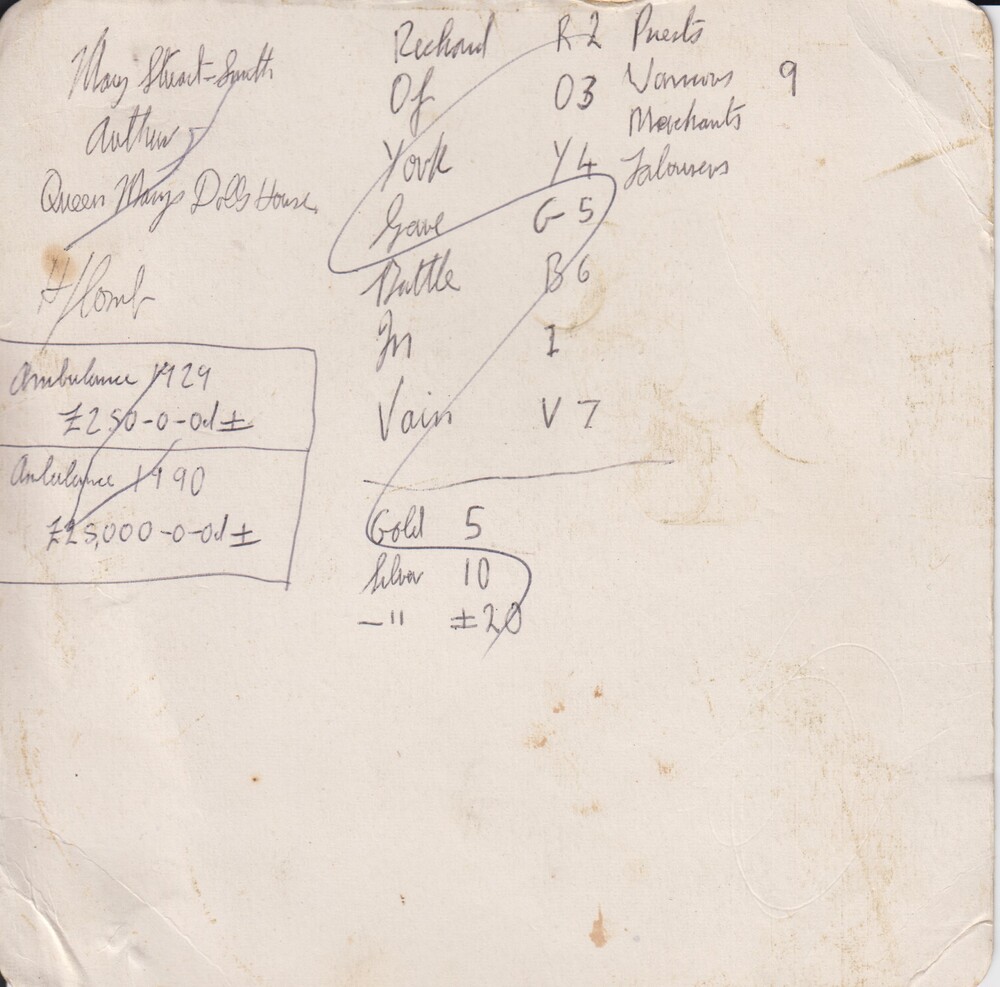 Mary Stuart-Smith
Author
Queen Marys Dolls House
H/Comb
Ambulance 1929
£250-0-0d ±
Ambulance 1990
£25,000-0-0d ±
Richard R 2 Priests
Of O 3 Warriors 9
Merchants
York Y 4 Labourers
Gave G 5
Battle B 6
In I
Vain V 7
Gold 5
Silver 10
—" ±20